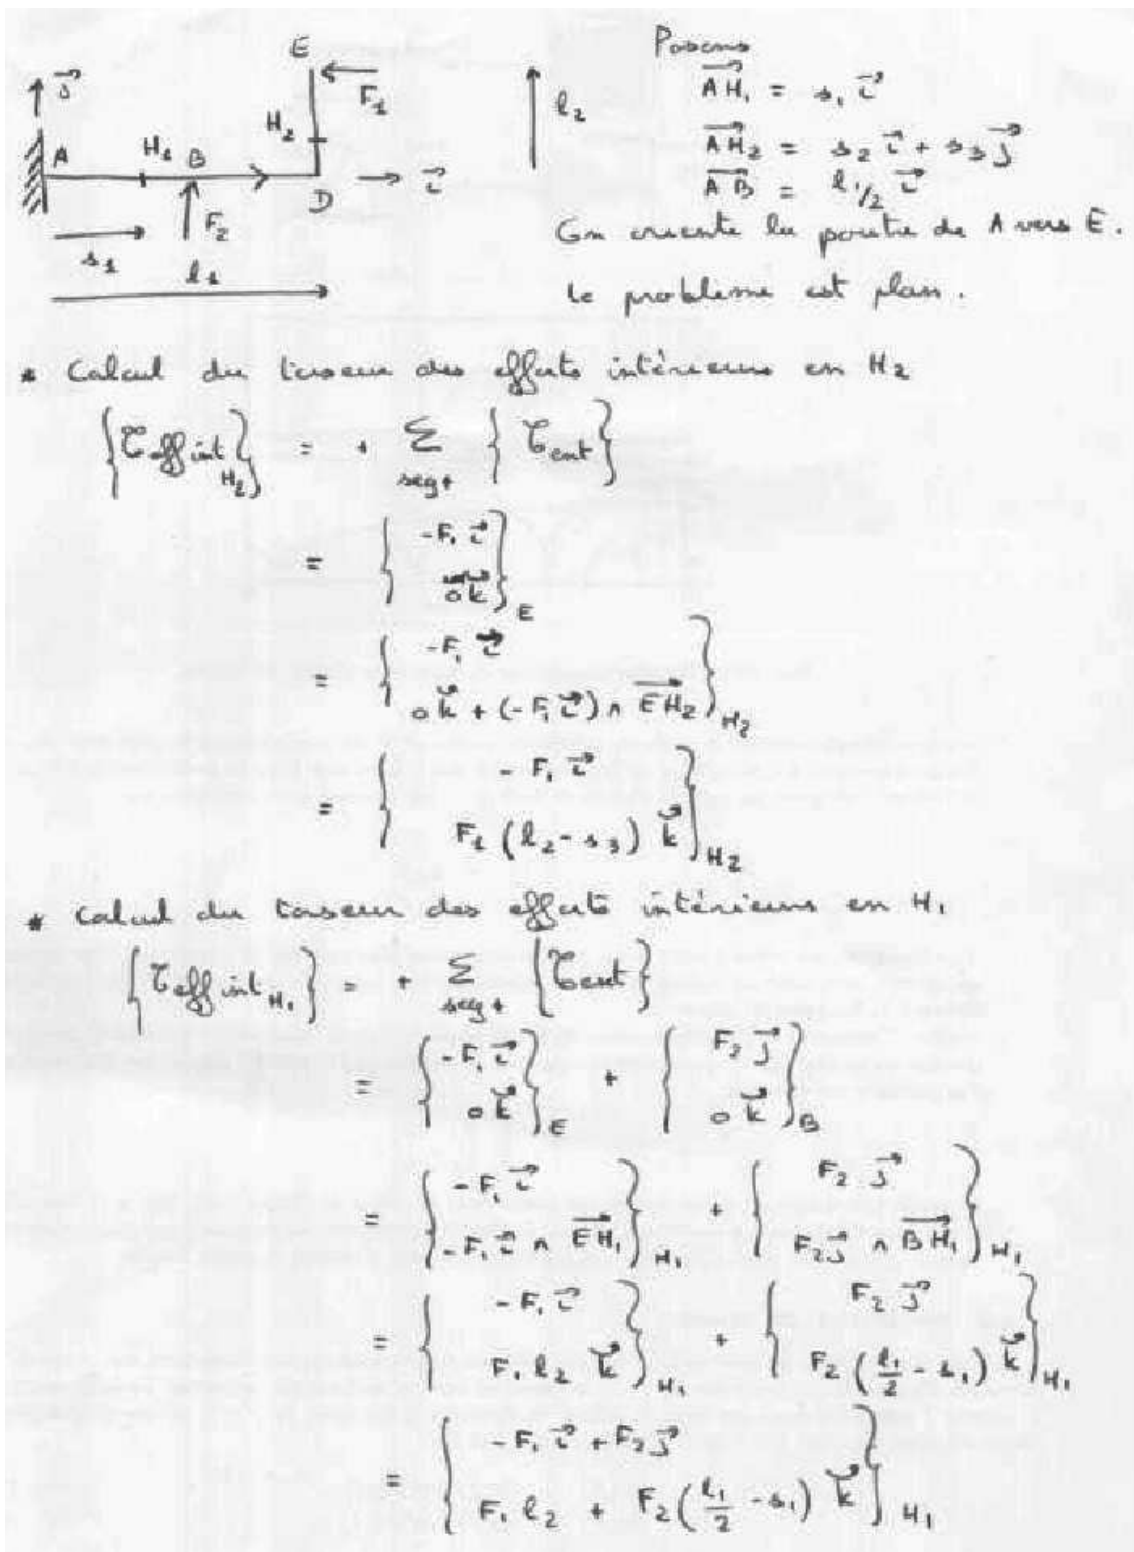 Posons
E
j⃗
F₁
l₂
AH₁⃗ = s₁ i⃗
A
H₁
B
H₂
D
i⃗
AH₂⃗ = s₂ i⃗ + s₃ j⃗
AB⃗ = l₁/2 i⃗
F₂
s₁
l₁
On oriente la poutre de A vers E.
Le problème est plan.
* Calcul du torseur des efforts intérieurs en H₂
{𝒯eff int H₂} = + Σ seg+ {𝒯ext}
= { -F₁ i⃗ ; 0 k⃗ } E
= { -F₁ i⃗ ; 0 k⃗ + (-F₁ i⃗) ∧ EH₂⃗ } H₂
= { -F₁ i⃗ ; F₁ (l₂ - s₃) k⃗ } H₂
* Calcul du torseur des efforts intérieurs en H₁
{𝒯eff int H₁} = + Σ seg+ {𝒯ext}
= { -F₁ i⃗ ; 0 k⃗ } E + { F₂ j⃗ ; 0 k⃗ } B
= { -F₁ i⃗ ; -F₁ i⃗ ∧ EH₁⃗ } H₁ + { F₂ j⃗ ; F₂ j⃗ ∧ BH₁⃗ } H₁
= { -F₁ i⃗ ; F₁ l₂ k⃗ } H₁ + { F₂ j⃗ ; F₂ (l₁/2 - s₁) k⃗ } H₁
= { -F₁ i⃗ + F₂ j⃗ ; F₁ l₂ + F₂ (l₁/2 - s₁) k⃗ } H₁